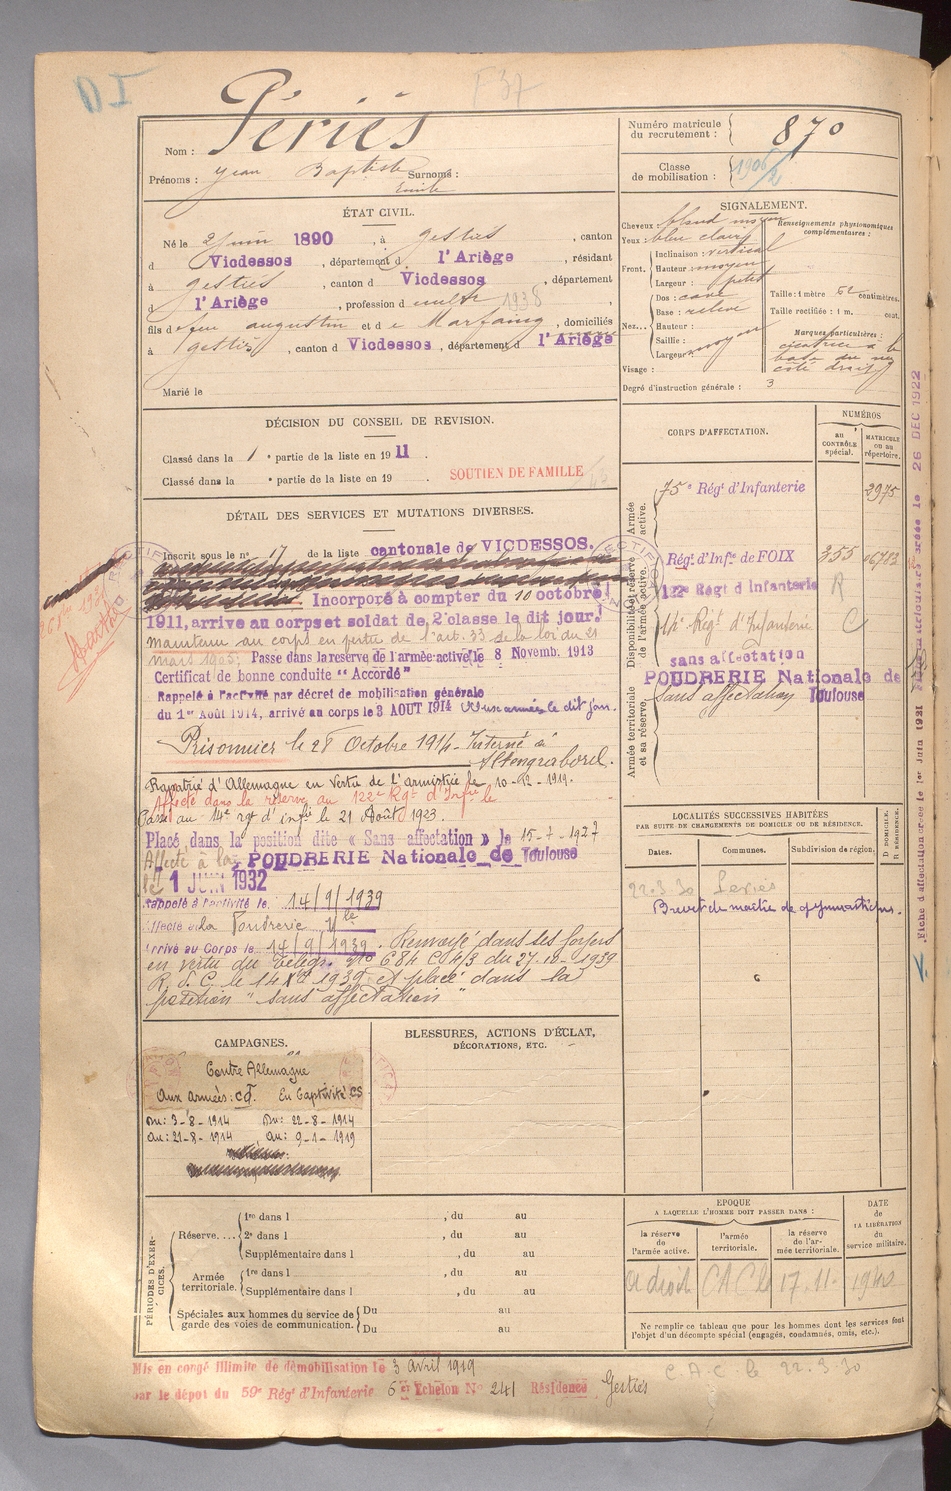 D I
F 37
Nom : Périés
Prénoms : Jean Baptiste Surnoms :
Emile
Numéro matricule du recrutement : 870
Classe de mobilisation : 1906/2
ÉTAT CIVIL.
Né le 2 Juin 1890, à Gestiés, canton
d Vicdessos, département d l'Ariège, résidant
à Gestiés, canton d Vicdessos, département
d l'Ariège, profession d cultr 1938,
fils de feu augustin et de Marfaing, domiciliés
à Gestiés, canton d Vicdessos, département d l'Ariège
Marié le
SIGNALEMENT.
Cheveux : blond moyen
Yeux : bleu clair
Front. Inclinaison : vertical
Hauteur : moyen
Largeur : petit
Nez... Dos : cave
Base : relevé
Hauteur :
Saillie :
Largeur : moyen
Visage :
Renseignements physionomiques complémentaires :
Taille : 1 mètre 62 centimètres.
Taille rectifiée : 1 m. cent.
Marques particulières :
cicatrice à la
base du nez
côté droit
Degré d'instruction générale : 3
DÉCISION DU CONSEIL DE REVISION.
Classé dans la 1 e partie de la liste en 1911.
Classé dans la e partie de la liste en 19
SOUTIEN DE FAMILLE
DÉTAIL DES SERVICES ET MUTATIONS DIVERSES.
Inscrit sous le n° 17 de la liste cantonale de VICDESSOS.
Incorporé à compter du 10 octobre
1911, arrive au corps et soldat de 2e classe le dit jour.
maintenu au corps en vertu de l'art. 33 de la loi du 21
mars 1905; Passe dans la réserve de l'armée active le 8 Novemb. 1913
Certificat de bonne conduite " Accordé "
Rappelé à l'activité par décret de mobilisation générale
du 1er Août 1914, arrivé au corps le 3 AOUT 1914 Aux armées le dit jour.
Prisonnier le 28 Octobre 1914 - Interné à
Altengrabord.
Rapatrié d'Allemagne en vertu de l'armistice le 10-02-1919.
Affecté dans la réserve au 122e Rgt d'Infie le
Passé au 14e rgt d'infie le 21 Août 1923.
Placé dans la position dite « Sans affectation » le 15-7-1927
Affecté à la POUDRERIE Nationale de Toulouse
le 1 JUIN 1932
rappelé à l'activité le 14/9/1939
Affecté à la Poudrerie Nle
Arrivé au Corps le 14/9/1939. Renvoyé dans les foyers
en vertu du Télégr. n° 684 C 4/3 du 27-10-1939
R. d. C. le 14 Xbre 1939 et placé dans la
position " sans affectation "
CORPS D'AFFECTATION.
NUMÉROS
au CONTRÔLE spécial.
MATRICULE ou au répertoire.
Armée active.
75e Régt d'Infanterie 2975
Disponibilité et réserve de l'armée active.
Régt d'Infie de FOIX 355 06782
122e Régt d'Infanterie R
14e Régt d'Infanterie C
sans affectation
Armée territoriale et sa réserve.
POUDRERIE Nationale de
Sans affectation Toulouse
LOCALITÉS SUCCESSIVES HABITÉES
PAR SUITE DE CHANGEMENTS DE DOMICILE OU DE RÉSIDENCE.
Dates.
Communes.
Subdivision de région.
D DOMICILE. R RÉSIDENCE.
22.3.30
Brevet de maître de gymnastique.
Fiche d'affectation créée le 1er Juin 1921
26 DEC 1922
CAMPAGNES.
Contre Allemagne
Aux armées : CD. En Captivité CS
Du : 3-8-1914 Du : 22-8-1914
Au : 21-8-1914 Au : 9-1-1919
BLESSURES, ACTIONS D'ÉCLAT,
DÉCORATIONS, ETC.
PÉRIODES D'EXERCICES.
Réserve.... 1re dans l , du au
2e dans l , du au
Supplémentaire dans l , du au
Armée territoriale. 1re dans l , du au
Supplémentaire dans l , du au
Spéciales aux hommes du service de garde des voies de communication. Du au
Du au
EPOQUE
A LAQUELLE L'HOMME DOIT PASSER DANS :
la réserve de l'armée active.
l'armée territoriale.
la réserve de l'armée territoriale.
DATE de LA LIBÉRATION du service militaire.
a droit CAC le 17.11. 1940
Ne remplir ce tableau que pour les hommes dont les services font
l'objet d'un décompte spécial (engagés, condamnés, omis, etc.).
Mis en congé illimité de démobilisation le 3 avril 1919
par le dépot du 59e Régt d'Infanterie 6e Echelon N° 241 Résidence Gestiés
C.A.C le 22.3.30